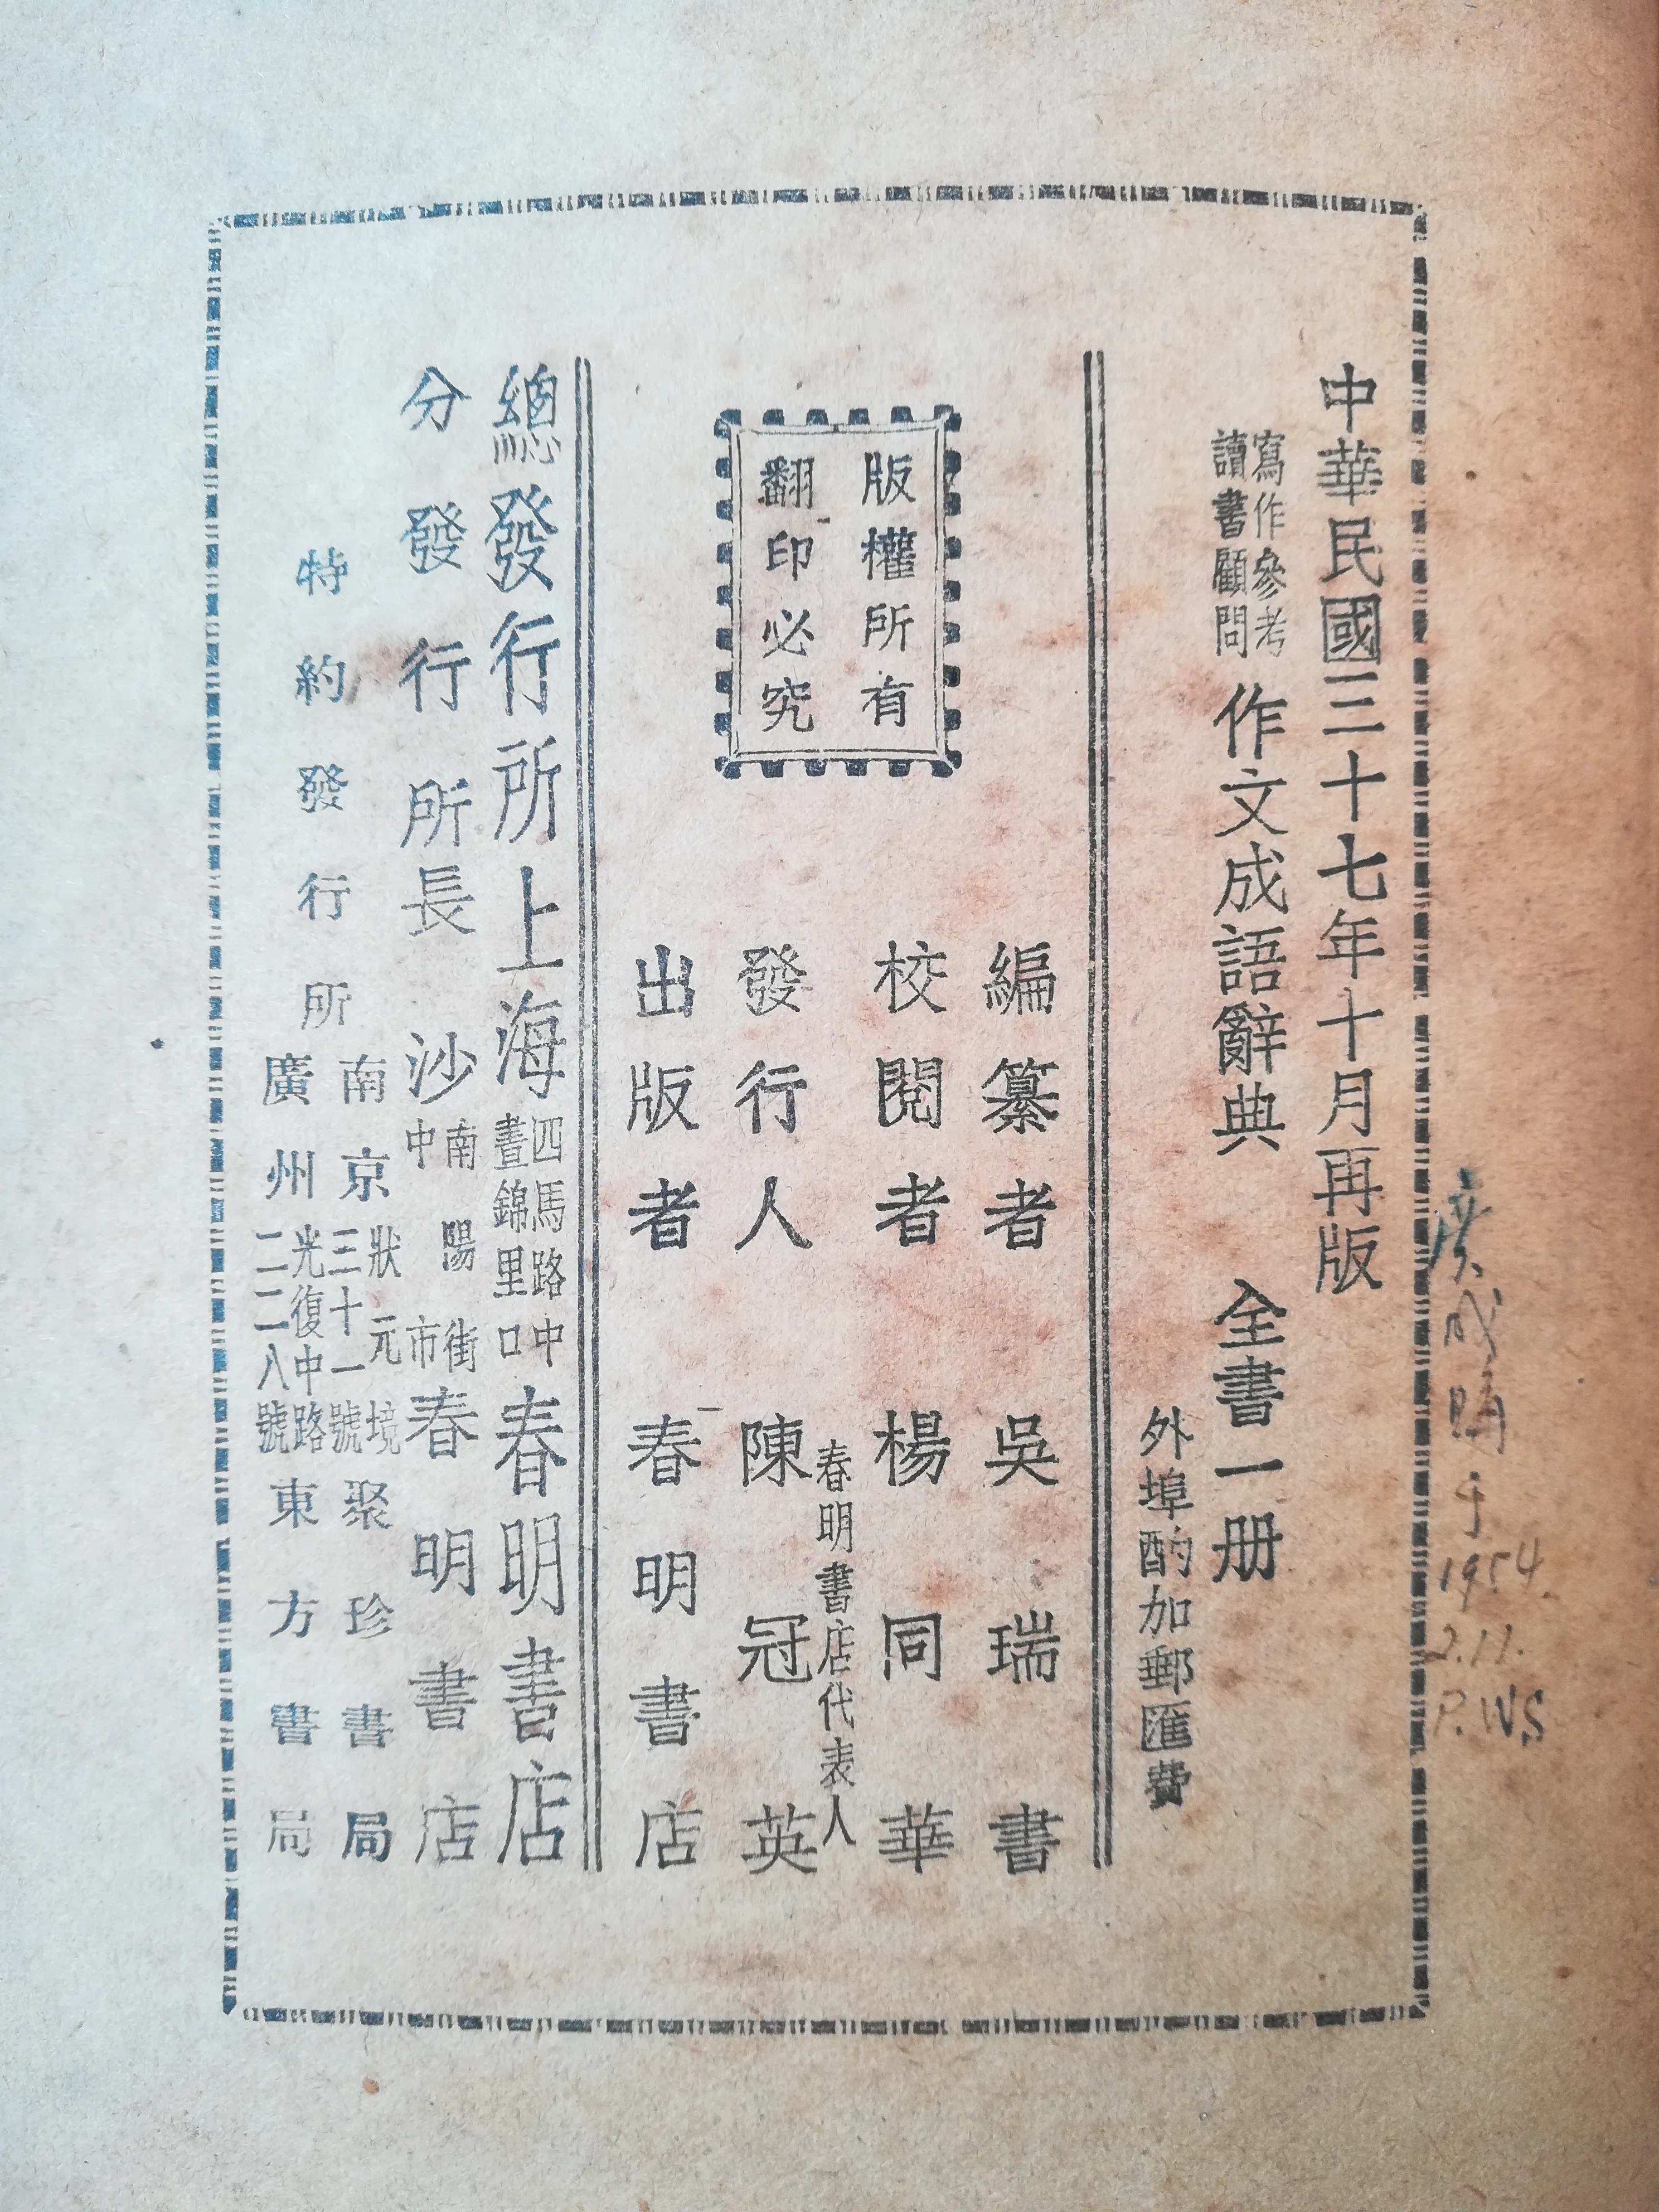 中華民國三十七年十月再版
寫作參考
讀書顧問
作文成語辭典 全書一册
外埠酌加郵匯費
版權所有
翻印必究
編纂者 吳瑞書
校閱者 楊同華
春明書店代表人
發行人 陳冠英
出版者 春明書店
總發行所 上海 四馬路中 晝錦里口 春明書店
分發行所 長沙 南陽街 中市 春明書店
特約發行所
南京 狀元境 三十一號 聚珍書局
廣州 光復中路 二二八號 東方書局
成購于
1954.
2.11.
P.WS